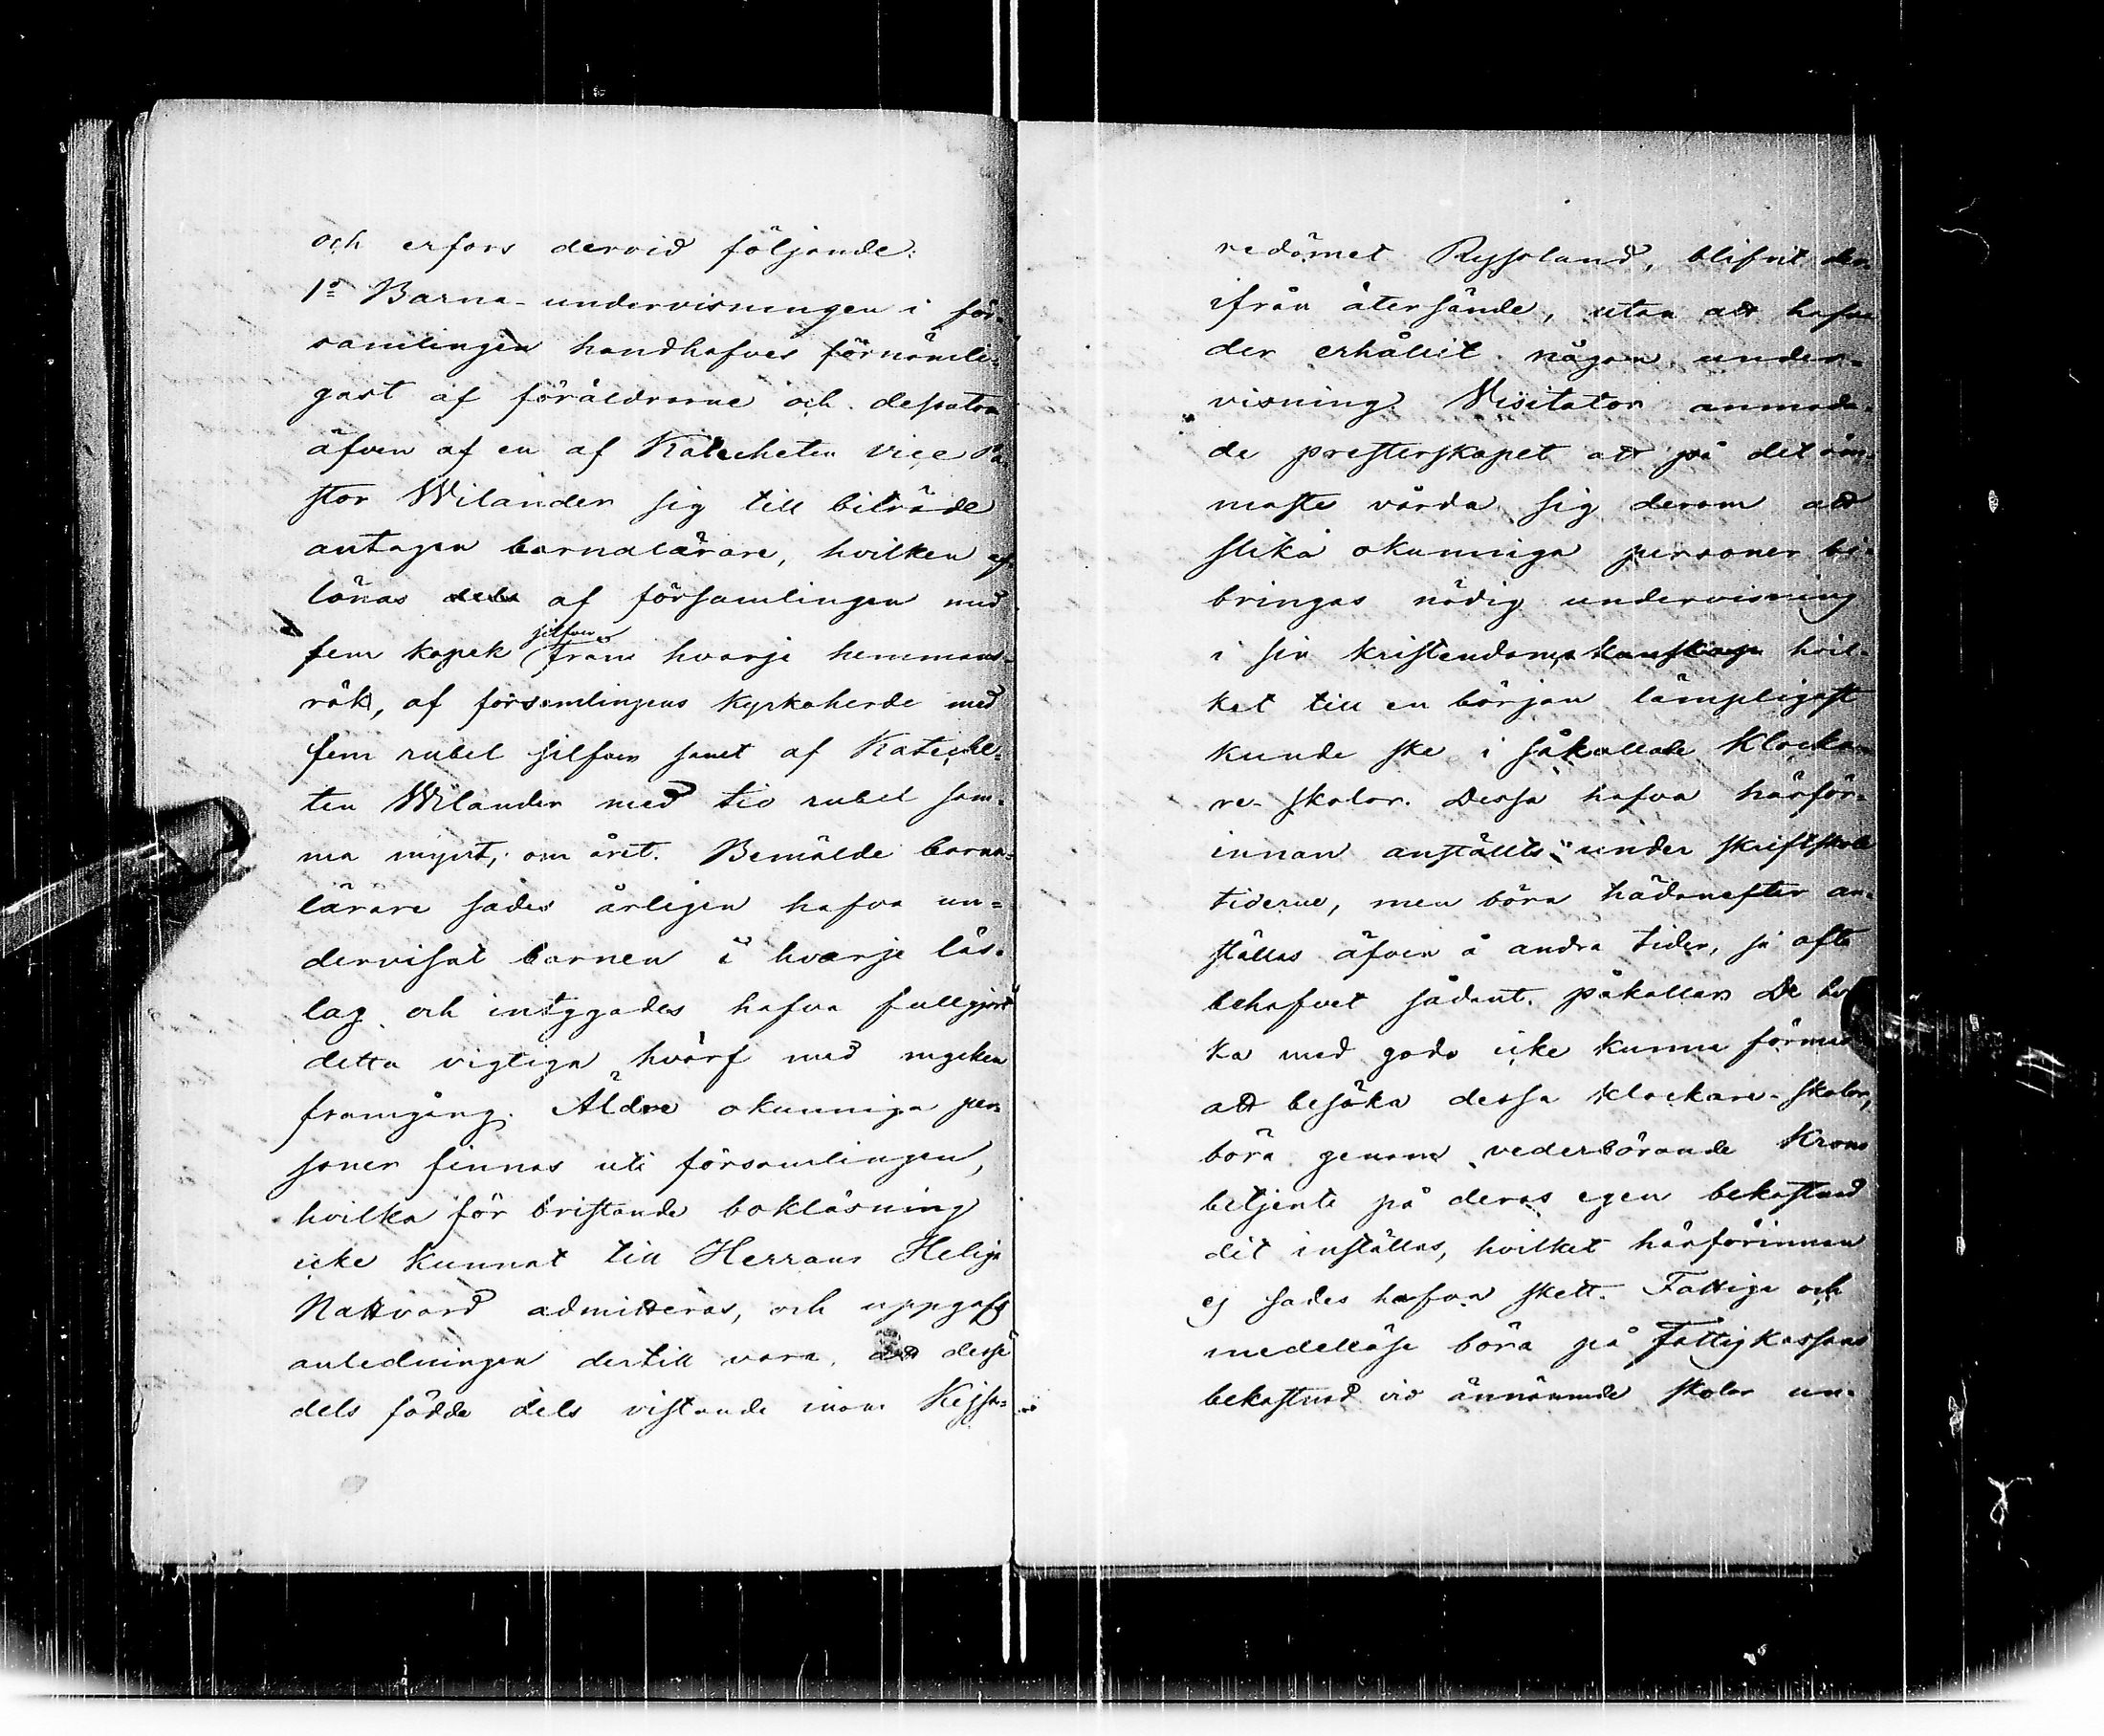 och erfors dervid följande:
1o Barna-undervisningen i för-
samlingen handhafves förnämli-
gast af föräldrarne och dessutom
äfven af en af Katecheten vice Pa-
stor Wilander sig till biträde
antagen barnalärare, hvilken af-
lönas dels af församlingen med
fem kopek silfver från hvarje hemmans-
rök, af församlingens Kyrkoherde med
fem rubel silfver samt af Kateche-
ten Wilander med tio rubel sam-
ma mynt, om året. Bemälde barna-
lärare sades årligen hafva un-
dervisat barnen i hvarje läs-
lag och intygades hafva fullgjort
detta vigtiga hvärf med mycken
framgång. Äldre okunniga per-
soner finnas uti församlingen,
hvilka för bristande bokläsning
icke kunnat till Herrans Heliga
Nattvard admitteras, och uppgafs
anledningen dertill vara, att desse
dels födde dels vistande inom Kejsa-
redömet Ryssland, blifvit der-
ifrån återsände, utan att hafva
der erhållit någon under-
visning. Visitator anmoda-
de presterskapet att på det öm-
maste vårda sig derom att
slika okunniga personer bi-
bringas nödig undervisning
i sin kristendoms kunskap hvil-
ket till en början lämpligast
kunde ske i såkallade Klocka-
re-skolor. Dessa hafva härför-
innan anställts under skriftskole
tiderne, men böra hädanefter an-
ställas äfven å andra tider, så ofta
behofvet sådant påkallar. De hvil-
ka med godo icke kunna förmås
att besöka dessa klockare-skolor,
böra genom vederbörande Krono
betjente på deras egen bekostnad
dit inställas, hvilket härförinnan
ej sades hafva skett. Fattige och
medellöse böra på Fattigkassans
bekostnad vid ännämnde skolor un-